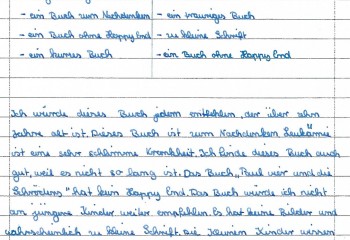 - ein Buch zum Nachdenken - ein trauriges Buch
- ein Buch ohne Happy End - zu kleine Schrift
- ein kurzes Buch - ein Buch ohne Happy End
Ich würde dieses Buch jedem entfehlen, der über zehn
Jahre alt ist. Dieses Buch ist zum Nachdenken Leukämie
ist eine sehr schlimme Krankheit. Ich finde dieses Buch auch
gut, weil es nicht so lang ist. Das Buch „Paul vier und die
Schröders" hat kein Happy End. Das Buch würde ich nicht
an jüngere Kinder weiter empfehlen. Es hat keine Bilder und
wahrscheinlich zu kleine Schrift. Die Kinder wissen